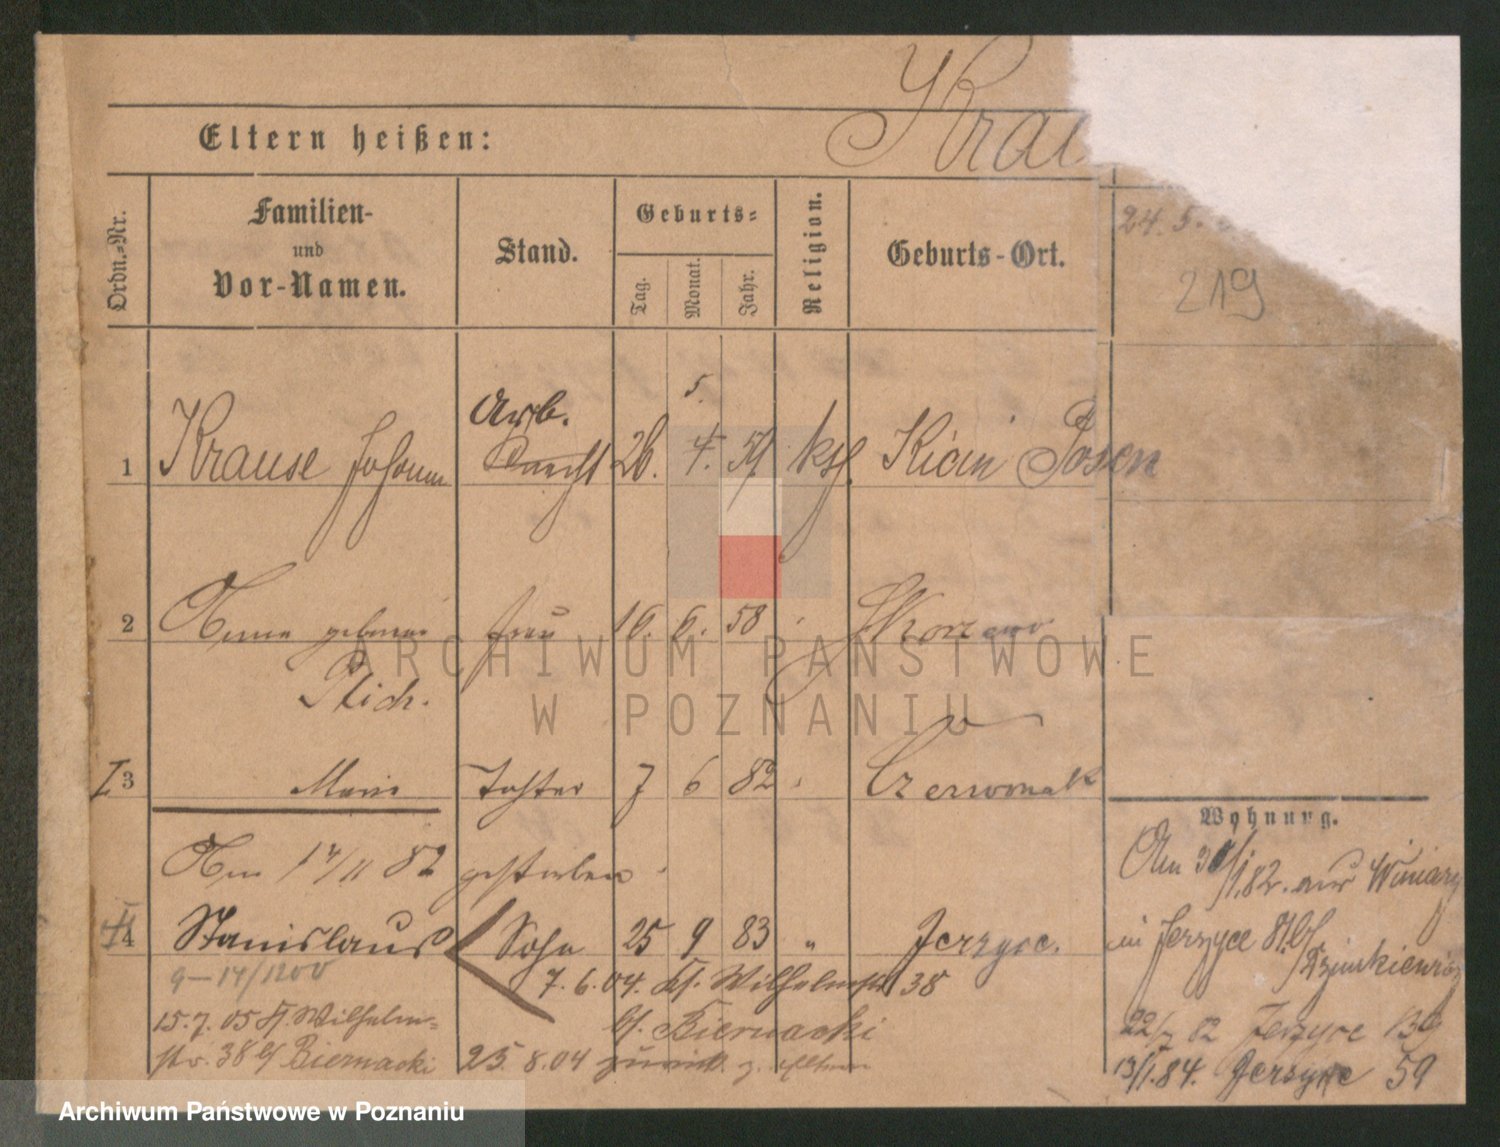 Krau
Eltern heißen:
Ordn.-Nr.
Familien-
und
Vor-Namen.
Stand.
Geburts-
Tag.
Monat.
Jahr.
Religion.
Geburts-Ort.
24. 5.
219
Arb.
5.
1 Krause Johann Knecht 26. 4. 59 kth. Kicin Posen
2 Anna geborne Frau 16. 6. 58 Skorzewo
Ptich.
I 3 Marie Tochter 7 6 82 Czerwonak
Wohnung.
Am 17/11 82 gestorben.
Am 30/1.82. aus Winiary
II 4 Stanislaus Sohn 25 9 83 " Jerzyce.
in Jerzyce 81 b/
9-14/1200
7. 6. 04. Kl. Wilhelmstr 38
15. 7. 05 Kl. Wilhelm-
b/. Biernacki
22/7 82 Jerzyce 139
str. 38 b/ Biernacki
25. 8. 04 zurück z. Eltern
13/1.84. Jerzyce 59
ARCHIWUM PAŃSTWOWE
W POZNANIU
Archiwum Państwowe w Poznaniu